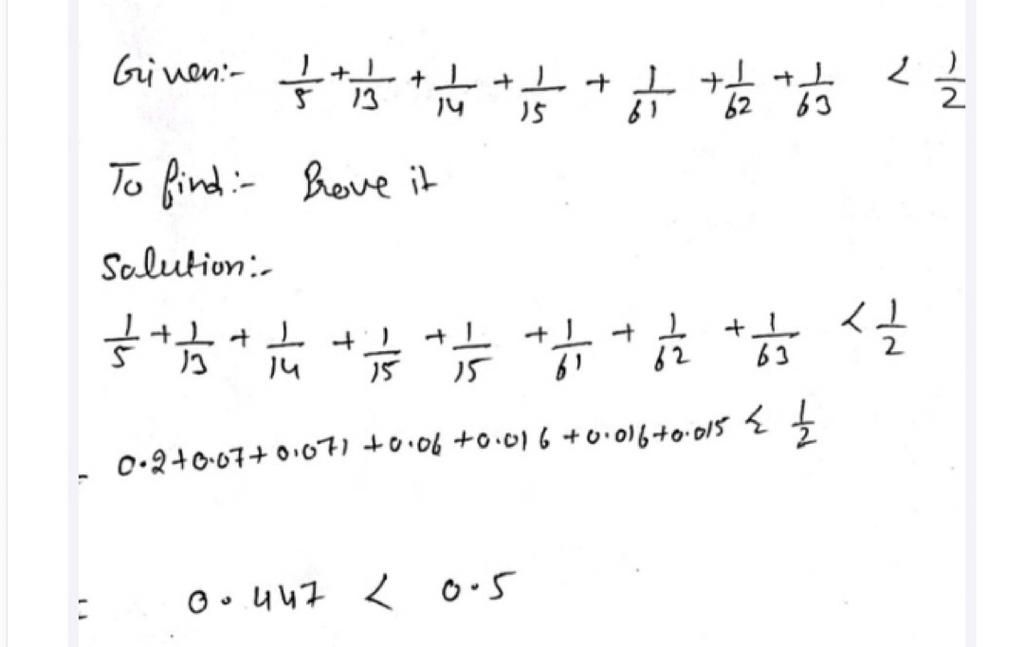 Given:- 1/5 + 1/13 + 1/14 + 1/15 + 1/61 + 1/62 + 1/63 < 1/2
To find:- Prove it
Solution:-
1/5 + 1/13 + 1/14 + 1/15 + 1/15 + 1/61 + 1/62 + 1/63 < 1/2
- 0.2+0.07+0.071+0.06+0.016+0.016+0.015 < 1/2
= 0.447 < 0.5